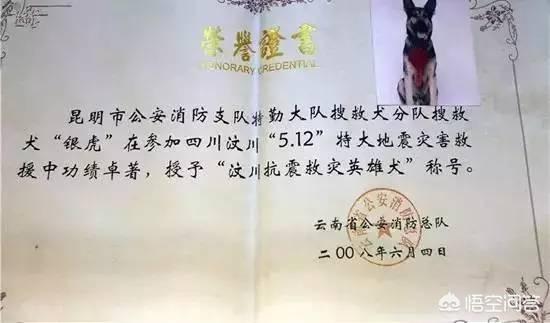 荣誉證書
HONORARY CREDENTIAL
昆明市公安消防支队特勤大队搜救犬分队搜救
犬“银虎”在参加四川汶川“5.12”特大地震灾害救
援中功绩卓著，授予“汶川抗震救灾英雄犬”称号。
云南省公安消防总队
二00八年六月四日
云南省公安消防总队
悟空问答